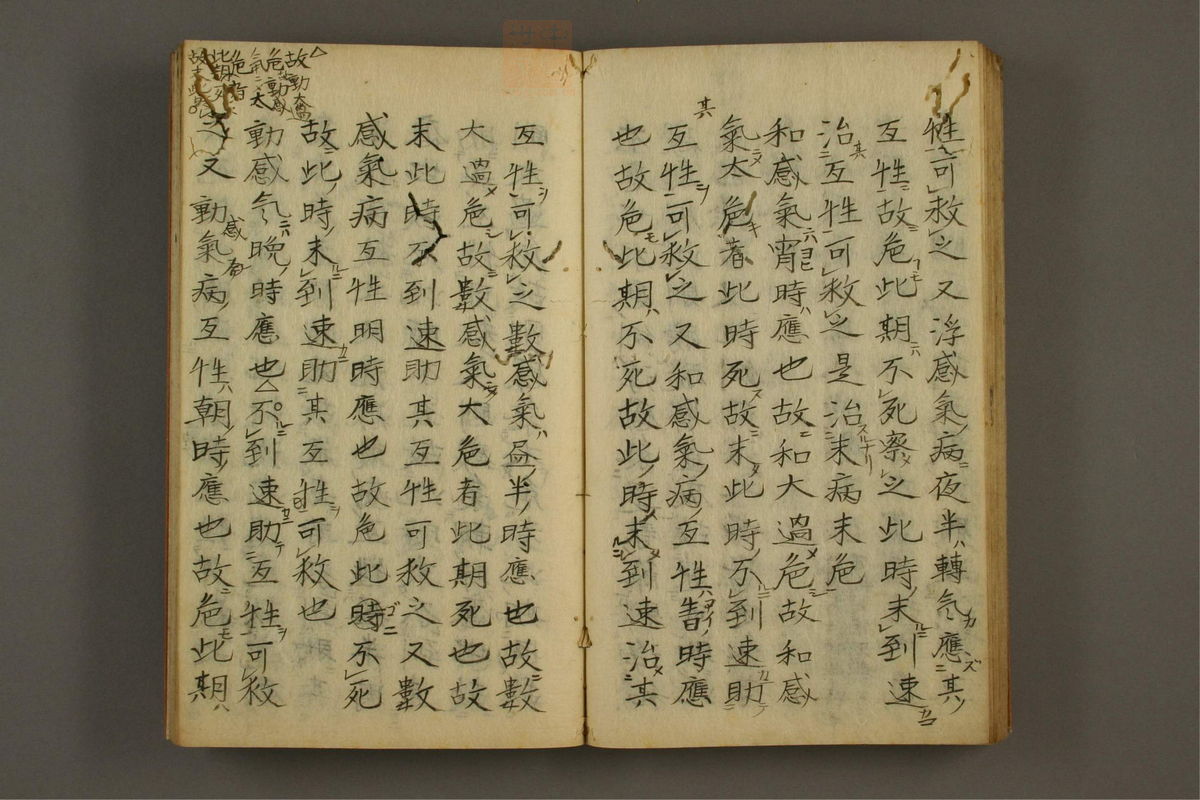 性可救之又浮感氣病夜半轉气應其
互性故危此期不死察之此時末到速
治互性可救之是治末病末危
和感氣宵時應也故和大過危故和感
氣太危者此時死故末此時不到速助
其
互性可救之又和感氣病互性時應
也故危此期不死故此時末到速治其
互性可救之數感氣昼半時應也故數
大過危故數感氣大危者此期死也故
末此時不到速助其互性可救之又數
感氣病互性明時應也故危此時不死
故此時末到速助其互性可救也
動感气晩時應也△不到速助互性可救
之又動氣病互性朝時應也故危此期
△故動大過
危動感
氣太
危者